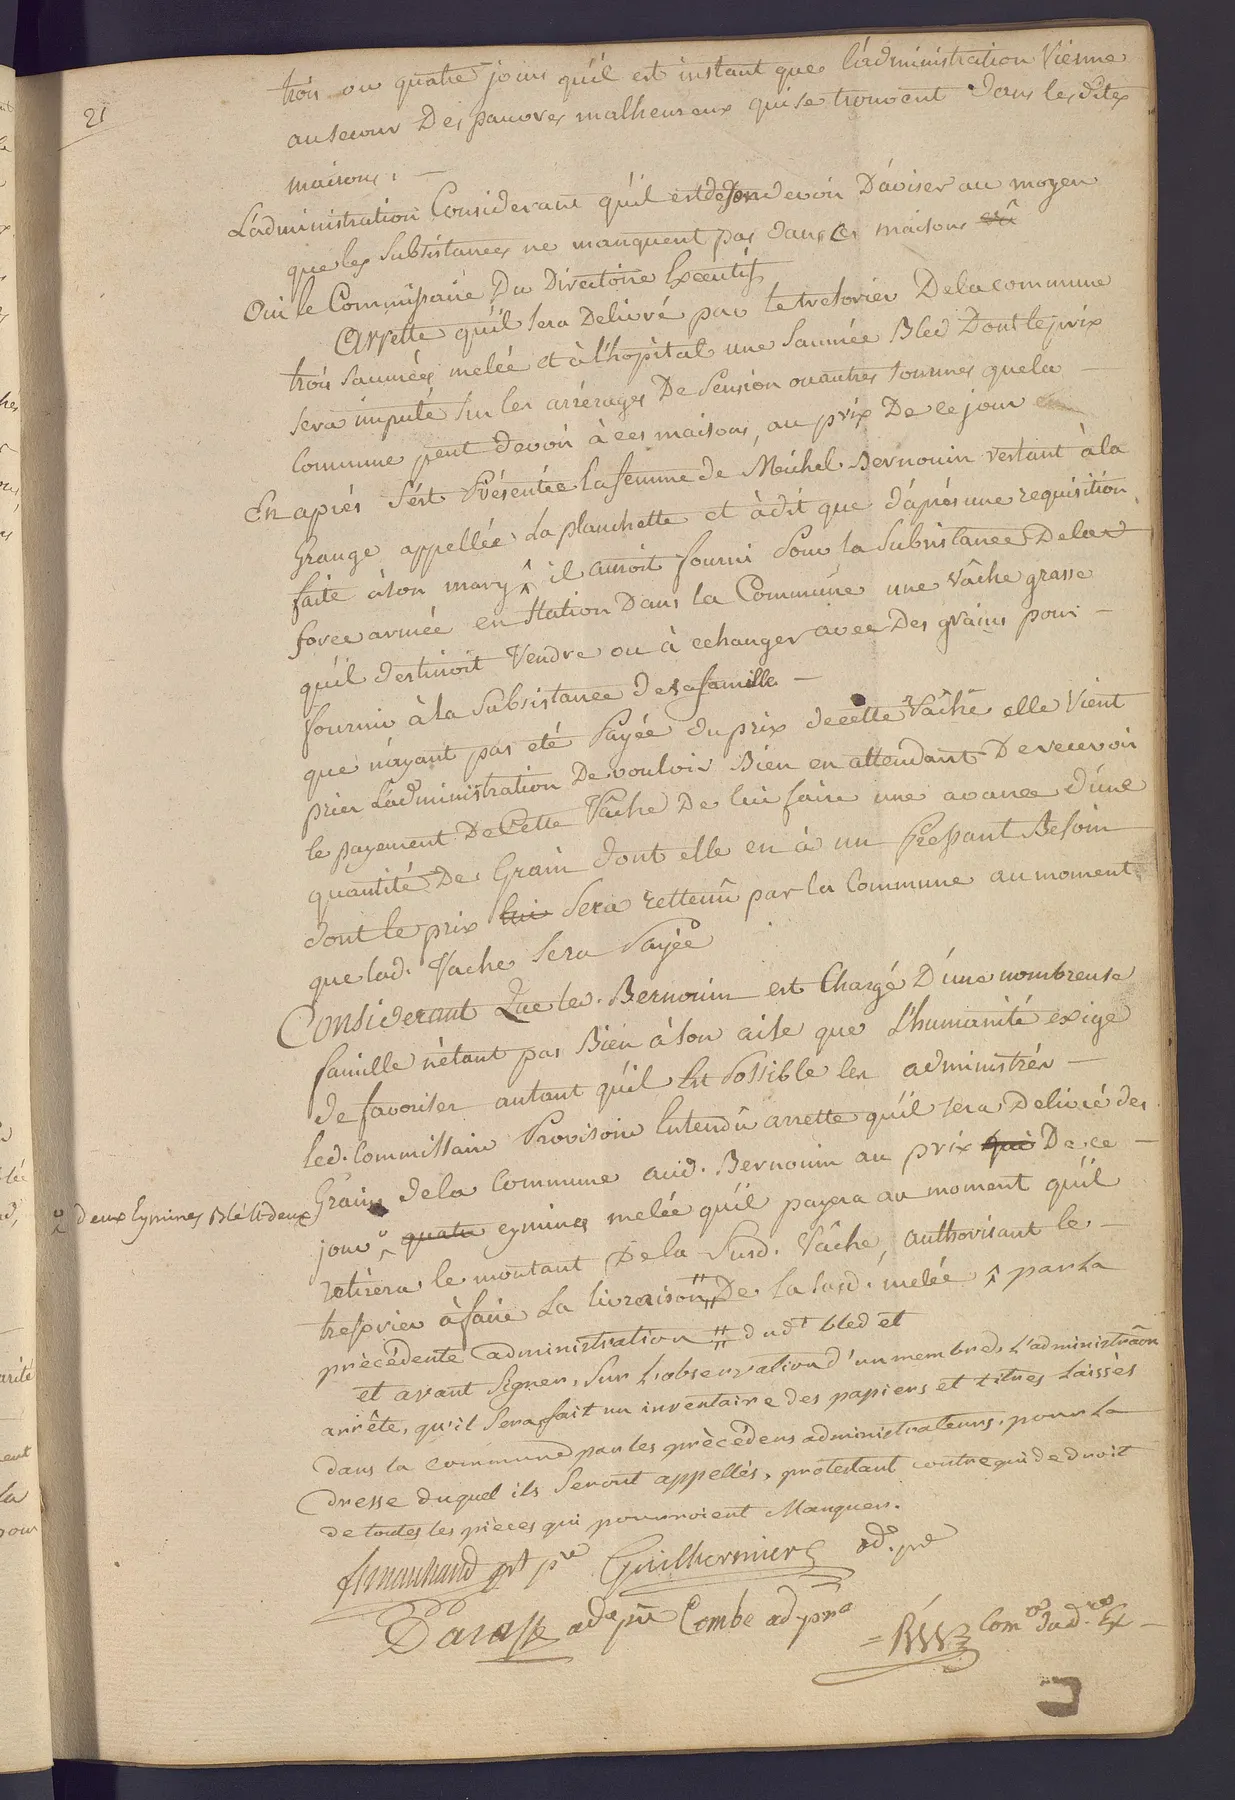 21
trois ou quatre jours qu'il est instant que l'administration Vienne
au secour Des pauvres malheureux qui se trouvent dans lesdites
maisons. —
L'administration Considerant qu'il est de son devoir D'aviser au moyen
que les Subsistances ne manquent pas dans ces maisons
Oui le Commissaire Du Directoire Executif
Arrette qu'il sera Delivré par le tresorier De la commune
trois saumées melée et à l'hopital une Saumée Bled Dont le prix
sera imputé sur les arrérages De Pension ou autres sommes que la —
Commune peut devoir à ces maisons, au prix De ce jour
En après s'est Présentée la femme de Michel Bernouin rentant à la
Grange appellée La planchette et à dit que d'après une requisition
faite à son mary ^ il auroit fourni Pour la Subsistance De la
force armée en Station Dans la Commune une Vâche grasse
qu'il destinoit Vendre ou à echanger avec Des grains pour —
fournir à la Subsistance de sa famille —
que n'ayant pas été Payée du prix de cette Vâche elle Vient
prier L'administration De vouloir Bien en attendant De recevoir
le payement De Cette Vâche De lui faire une avance d'une
quantité De Grain dont elle en à un Pressant Besoin
dont le prix lui Sera rettenû par la Commune au moment
que lad. Vache Sera Payée
Considerant Que le c. Bernouin est Chargé D'une nombreuse
famille n'étant pas Bien à son aise que L'humanité exige
de favoriser autant qu'il Est Possible les administrés —
Led. Commissaire Provisoire Entendû arrette qu'il sera Delivré des
Grains de la Commune aud. Bernouin au prix qui De ce —
deux Eymines Blé & deux
jour quatre eymines melée qu'il payera au moment qu'il
retirera le montant De la Susd. Vâche, authorisant le —
tresorier à faire La livraison De La susd. melée ^ par La
précédente administration dud.t bled et
et avant signer, sur l'observation d'un membre, L'administraôn
arrête, qu'il sera fait un inventaire des papiers et titres Laissés
dans la commune par les précédens administrateurs, pour La
dresse duquel ils seront appellés, protestant contre qui de droit
de toutes les pièces qui pourroient Manquer.
Guilhermier ad. pre
ade pre Combe ad pre
Comre dud. re Ex —